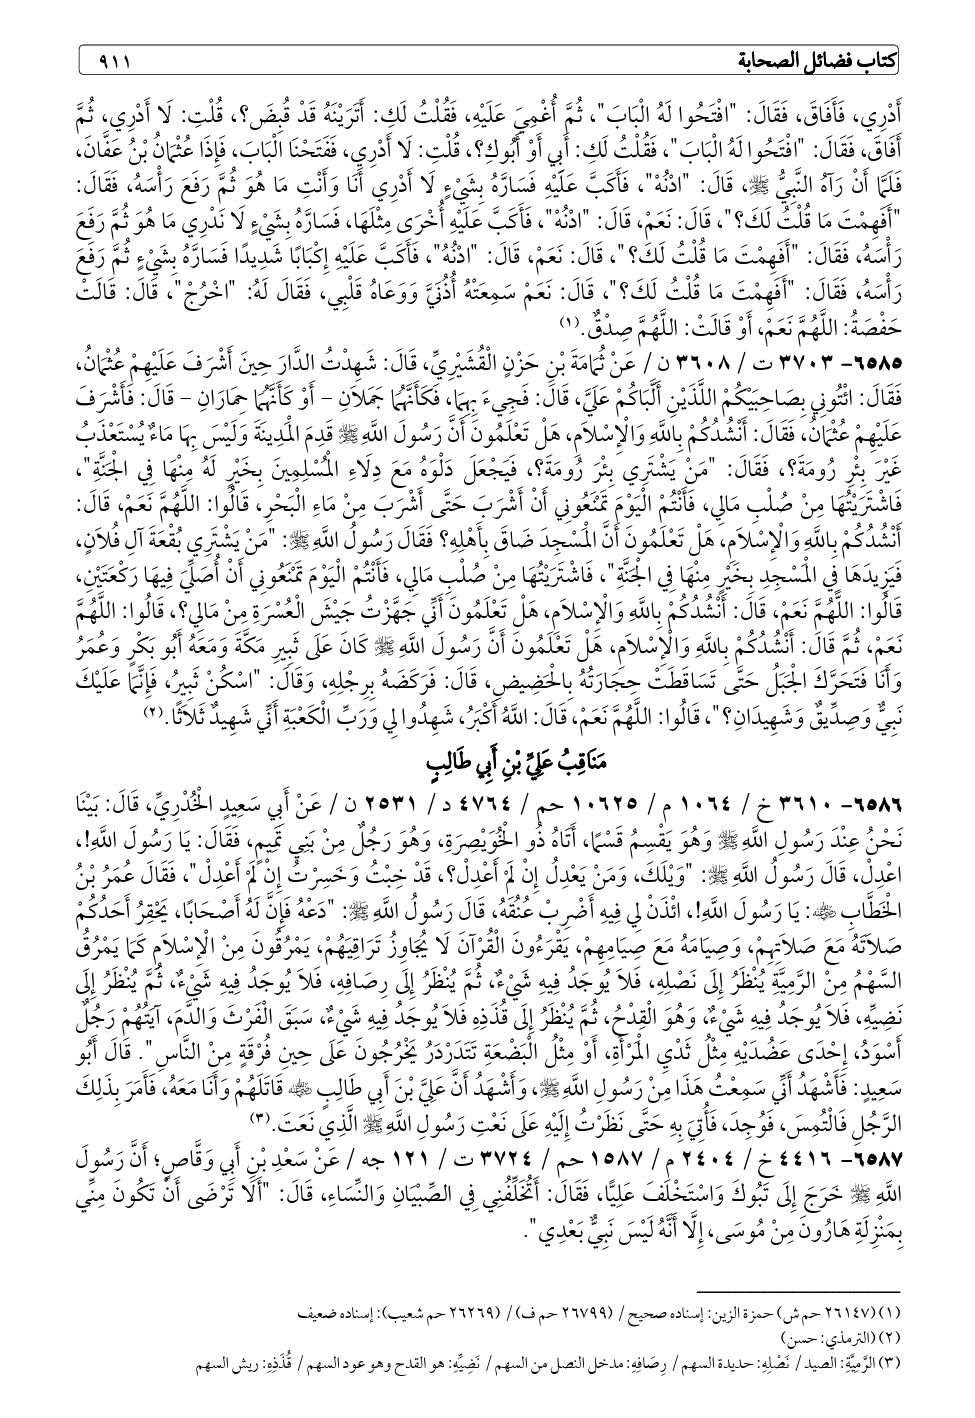 كتاب فضائل الصحابة ٩١١
أَدْرِي، فَأَفَاقَ، فَقَالَ: "افْتَحُوا لَهُ الْبَابَ"، ثُمَّ أُغْمِيَ عَلَيْهِ، فَقُلْتُ لَكِ: أَتَرَيْنَهُ قَدْ قُبِضَ؟، قُلْتِ: لَا أَدْرِي، ثُمَّ
أَفَاقَ، فَقَالَ: "افْتَحُوا لَهُ الْبَابَ"، فَقُلْتُ لَكِ: أَبِي أَوْ أَبُوكِ؟، قُلْتِ: لَا أَدْرِي، فَفَتَحْنَا الْبَابَ، فَإِذَا عُثْمَانُ بْنُ عَفَّانَ،
فَلَمَّا أَنْ رَآهُ النَّبِيُّ ﷺ، قَالَ: "ادْنُهْ"، فَأَكَبَّ عَلَيْهِ فَسَارَّهُ بِشَيْءٍ لَا أَدْرِي أَنَا وَأَنْتِ مَا هُوَ ثُمَّ رَفَعَ رَأْسَهُ، فَقَالَ:
"أَفَهِمْتَ مَا قُلْتُ لَكَ؟"، قَالَ: نَعَمْ، قَالَ: "ادْنُهْ"، فَأَكَبَّ عَلَيْهِ أُخْرَى مِثْلَهَا، فَسَارَّهُ بِشَيْءٍ لَا نَدْرِي مَا هُوَ ثُمَّ رَفَعَ
رَأْسَهُ، فَقَالَ: "أَفَهِمْتَ مَا قُلْتُ لَكَ؟"، قَالَ: نَعَمْ، قَالَ: "ادْنُهْ"، فَأَكَبَّ عَلَيْهِ إِكْبَابًا شَدِيدًا فَسَارَّهُ بِشَيْءٍ ثُمَّ رَفَعَ
رَأْسَهُ، فَقَالَ: "أَفَهِمْتَ مَا قُلْتُ لَكَ؟"، قَالَ: نَعَمْ سَمِعَتْهُ أُذُنَيَّ وَوَعَاهُ قَلْبِي، فَقَالَ لَهُ: "اخْرُجْ"، قَالَ: قَالَتْ
حَفْصَةُ: اللَّهُمَّ نَعَمْ، أَوْ قَالَتْ: اللَّهُمَّ صِدْقٌ.(١)
٦٥٨٥- ٣٧٠٣ ت / ٣٦٠٨ ن / عَنْ ثُمَامَةَ بْنِ حَزْنٍ الْقُشَيْرِيِّ، قَالَ: شَهِدْتُ الدَّارَ حِينَ أَشْرَفَ عَلَيْهِمْ عُثْمَانُ،
فَقَالَ: ائْتُونِي بِصَاحِبَيْكُمْ اللَّذَيْنِ أَلَّبَاكُمْ عَلَيَّ، قَالَ: فَجِيءَ بِهِمَا، فَكَأَنَّهُمَا جَمَلَانِ – أَوْ كَأَنَّهُمَا حِمَارَانِ – قَالَ: فَأَشْرَفَ
عَلَيْهِمْ عُثْمَانُ، فَقَالَ: أَنْشُدُكُمْ بِاللَّهِ وَالْإِسْلَامِ، هَلْ تَعْلَمُونَ أَنَّ رَسُولَ اللَّهِ ﷺ قَدِمَ الْمَدِينَةَ وَلَيْسَ بِهَا مَاءٌ يُسْتَعْذَبُ
غَيْرَ بِئْرِ رُومَةَ؟، فَقَالَ: "مَنْ يَشْتَرِي بِئْرَ رُومَةَ؟، فَيَجْعَلَ دَلْوَهُ مَعَ دِلَاءِ الْمُسْلِمِينَ بِخَيْرٍ لَهُ مِنْهَا فِي الْجَنَّةِ"،
فَاشْتَرَيْتُهَا مِنْ صُلْبِ مَالِي، فَأَنْتُمْ الْيَوْمَ تَمْنَعُونِي أَنْ أَشْرَبَ حَتَّى أَشْرَبَ مِنْ مَاءِ الْبَحْرِ، قَالُوا: اللَّهُمَّ نَعَمْ، قَالَ:
أَنْشُدُكُمْ بِاللَّهِ وَالْإِسْلَامِ، هَلْ تَعْلَمُونَ أَنَّ الْمَسْجِدَ ضَاقَ بِأَهْلِهِ؟ فَقَالَ رَسُولُ اللَّهِ ﷺ: "مَنْ يَشْتَرِي بُقْعَةَ آلِ فُلَانٍ،
فَيَزِيدَهَا فِي الْمَسْجِدِ بِخَيْرٍ مِنْهَا فِي الْجَنَّةِ"، فَاشْتَرَيْتُهَا مِنْ صُلْبِ مَالِي، فَأَنْتُمْ الْيَوْمَ تَمْنَعُونِي أَنْ أُصَلِّيَ فِيهَا رَكْعَتَيْنِ،
قَالُوا: اللَّهُمَّ نَعَمْ، قَالَ: أَنْشُدُكُمْ بِاللَّهِ وَالْإِسْلَامِ، هَلْ تَعْلَمُونَ أَنِّي جَهَّزْتُ جَيْشَ الْعُسْرَةِ مِنْ مَالِي؟، قَالُوا: اللَّهُمَّ
نَعَمْ، ثُمَّ قَالَ: أَنْشُدُكُمْ بِاللَّهِ وَالْإِسْلَامِ، هَلْ تَعْلَمُونَ أَنَّ رَسُولَ اللَّهِ ﷺ كَانَ عَلَى ثَبِيرِ مَكَّةَ وَمَعَهُ أَبُو بَكْرٍ وَعُمَرُ
وَأَنَا فَتَحَرَّكَ الْجَبَلُ حَتَّى تَسَاقَطَتْ حِجَارَتُهُ بِالْحَضِيضِ، قَالَ: فَرَكَضَهُ بِرِجْلِهِ، وَقَالَ: "اسْكُنْ ثَبِيرُ، فَإِنَّمَا عَلَيْكَ
نَبِيٌّ وَصِدِّيقٌ وَشَهِيدَانِ؟"، قَالُوا: اللَّهُمَّ نَعَمْ، قَالَ: اللَّهُ أَكْبَرُ، شَهِدُوا لِي وَرَبِّ الْكَعْبَةِ أَنِّي شَهِيدٌ ثَلَاثًا.(٢)
مَنَاقِبُ عَلِيِّ بْنِ أَبِي طَالِبٍ
٦٥٨٦- ٣٦١٠ خ / ١٠٦٤ م / ١٠٦٢٥ حم / ٤٧٦٤ د / ٢٥٣١ ن / عَنْ أَبِي سَعِيدٍ الْخُدْرِيِّ، قَالَ: بَيْنَا
نَحْنُ عِنْدَ رَسُولِ اللَّهِ ﷺ وَهُوَ يَقْسِمُ قَسْمًا، أَتَاهُ ذُو الْخُوَيْصِرَةِ، وَهُوَ رَجُلٌ مِنْ بَنِي تَمِيمٍ، فَقَالَ: يَا رَسُولَ اللَّهِ!،
اعْدِلْ، قَالَ رَسُولُ اللَّهِ ﷺ: "وَيْلَكَ، وَمَنْ يَعْدِلُ إِنْ لَمْ أَعْدِلْ؟، قَدْ خِبْتُ وَخَسِرْتُ إِنْ لَمْ أَعْدِلْ"، فَقَالَ عُمَرُ بْنُ
الْخَطَّابِ ﵁: يَا رَسُولَ اللَّهِ!، ائْذَنْ لِي فِيهِ أَضْرِبْ عُنُقَهُ، قَالَ رَسُولُ اللَّهِ ﷺ: "دَعْهُ فَإِنَّ لَهُ أَصْحَابًا، يَحْقِرُ أَحَدُكُمْ
صَلَاتَهُ مَعَ صَلَاتِهِمْ، وَصِيَامَهُ مَعَ صِيَامِهِمْ، يَقْرَءُونَ الْقُرْآنَ لَا يُجَاوِزُ تَرَاقِيَهُمْ، يَمْرُقُونَ مِنْ الْإِسْلَامِ كَمَا يَمْرُقُ
السَّهْمُ مِنْ الرَّمِيَّةِ يُنْظَرُ إِلَى نَصْلِهِ، فَلَا يُوجَدُ فِيهِ شَيْءٌ، ثُمَّ يُنْظَرُ إِلَى رِصَافِهِ، فَلَا يُوجَدُ فِيهِ شَيْءٌ، ثُمَّ يُنْظَرُ إِلَى
نَضِيِّهِ، فَلَا يُوجَدُ فِيهِ شَيْءٌ، وَهُوَ الْقِدْحُ، ثُمَّ يُنْظَرُ إِلَى قُذَذِهِ فَلَا يُوجَدُ فِيهِ شَيْءٌ، سَبَقَ الْفَرْثَ وَالدَّمَ، آيَتُهُمْ رَجُلٌ
أَسْوَدُ، إِحْدَى عَضُدَيْهِ مِثْلُ ثَدْيِ الْمَرْأَةِ، أَوْ مِثْلُ الْبَضْعَةِ تَتَدَرْدَرُ يَخْرُجُونَ عَلَى حِينِ فُرْقَةٍ مِنْ النَّاسِ". قَالَ أَبُو
سَعِيدٍ: فَأَشْهَدُ أَنِّي سَمِعْتُ هَذَا مِنْ رَسُولِ اللَّهِ ﷺ، وَأَشْهَدُ أَنَّ عَلِيَّ بْنَ أَبِي طَالِبٍ ﵁ قَاتَلَهُمْ وَأَنَا مَعَهُ، فَأَمَرَ بِذَلِكَ
الرَّجُلِ فَالْتُمِسَ، فَوُجِدَ، فَأُتِيَ بِهِ حَتَّى نَظَرْتُ إِلَيْهِ عَلَى نَعْتِ رَسُولِ اللَّهِ ﷺ الَّذِي نَعَتَ.(٣)
٦٥٨٧- ٤٤١٦ خ / ٢٤٠٤ م / ١٥٨٧ حم / ٣٧٢٤ ت / ١٢١ جه / عَنْ سَعْدِ بْنِ أَبِي وَقَّاصٍ؛ أَنَّ رَسُولَ
اللَّهِ ﷺ خَرَجَ إِلَى تَبُوكَ وَاسْتَخْلَفَ عَلِيًّا، فَقَالَ: أَتُخَلِّفُنِي فِي الصِّبْيَانِ وَالنِّسَاءِ، قَالَ: "أَلَا تَرْضَى أَنْ تَكُونَ مِنِّي
بِمَنْزِلَةِ هَارُونَ مِنْ مُوسَى، إِلَّا أَنَّهُ لَيْسَ نَبِيٌّ بَعْدِي".
(١) (٢٦١٤٧ حم ش) حمزة الزين: إسناده صحيح / (٢٦٧٩٩ حم ف) / (٢٦٢٦٩ حم شعيب): إسناده ضعيف
(٢) (الترمذي: حسن)
(٣) الرَّمِيَّةِ: الصيد / نَصْلِهِ: حديدة السهم / رِصَافِهِ: مدخل النصل من السهم / نَضِيِّهِ: هو القدح وهو عود السهم / قُذَذِهِ: ريش السهم